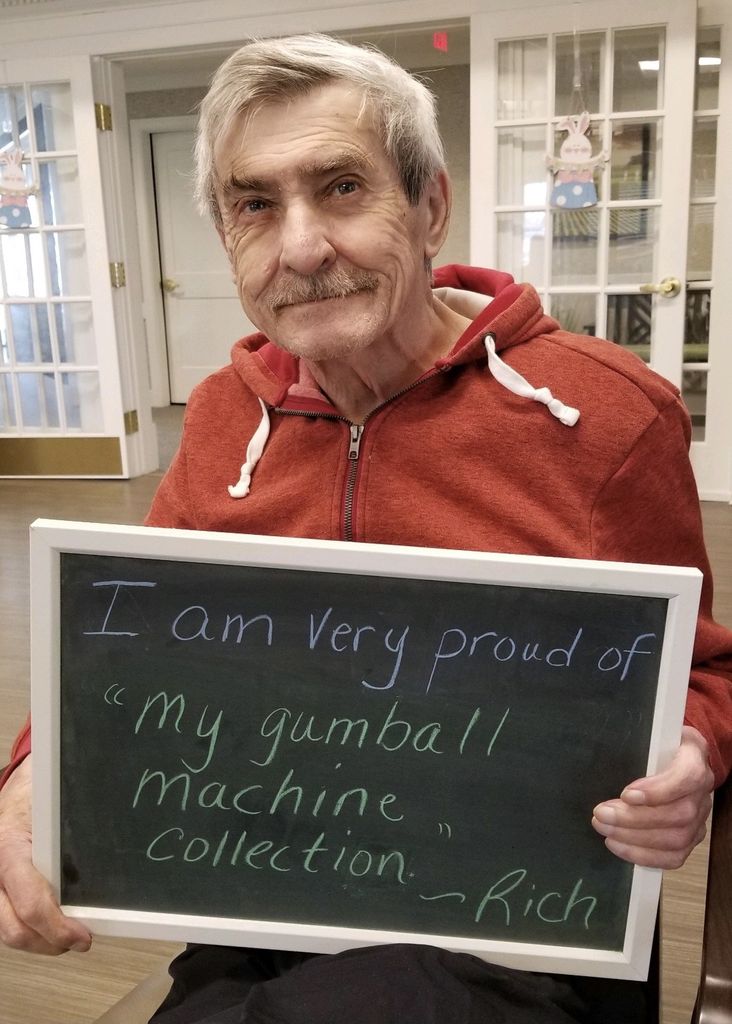 I am very proud of
"My gumball
machine
collection"
~Rich